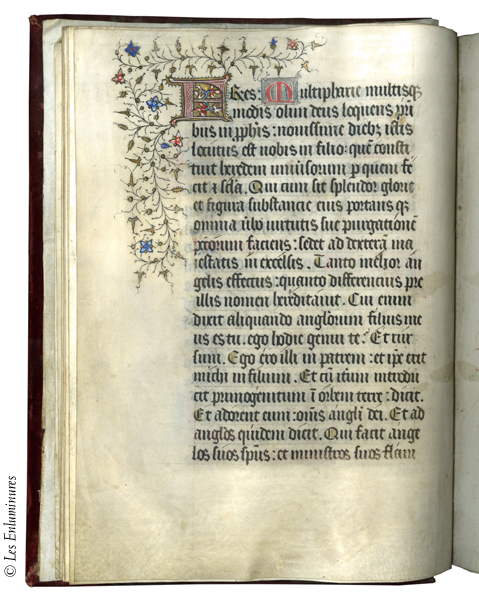 FRes: Multipharie multisq;
modis olim deus loquens pr̄i
bus in p̄ph̄is: nouissime dieb; istis
locutus est nobis in filio: quē consti
tuit heredem uniuersorum p quem fe
cit ⁊ sclā. Qui cum sit splendor glorie
et figura substancie eius portans q;
omnia ūbo uirtutis sue purgationē
pctorum faciens: sedet ad dexterā ma
iestatis in excelsis. Tanto melior an
gelis effectus: quanto differencius pre
illis nomen hereditauit. Cui enim
dixit aliquando anglorum filius me
us es tu. ego hodie genui te. Et rur
sum. Ego ero illi in patrem: et ip̄e erit
michi in filium. Et cū itum introdu
cit primogenitum ī orbem terre: dicit.
Et adorent eum: om̄s angli dei. Et ad
anglos quidem dicit. Qui facit ange
los suos sp̄us: et ministros suos flam
© Les Enluminures